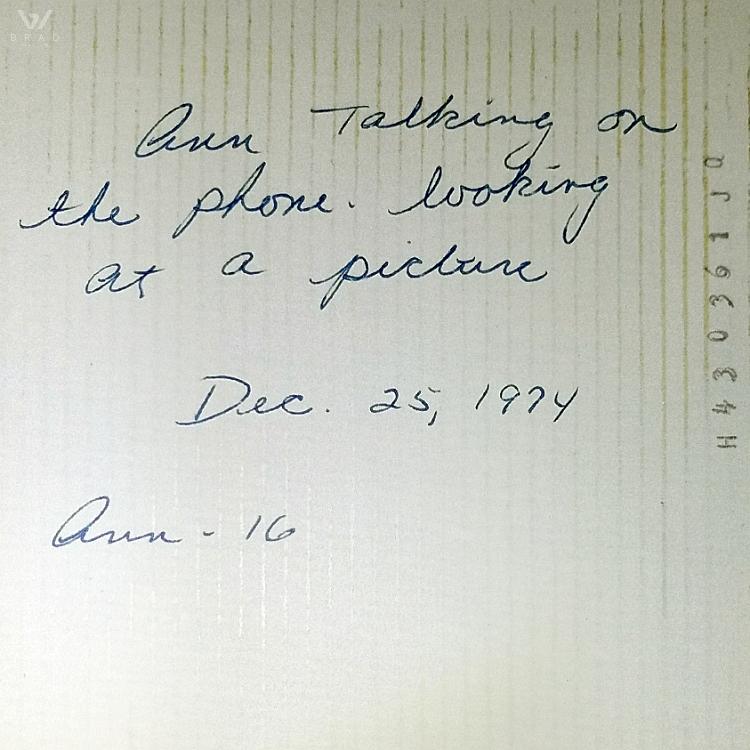 Ann Talking on
the phone. looking
at a picture
Dec. 25, 1974
Ann - 16
H430361JO
BRAD